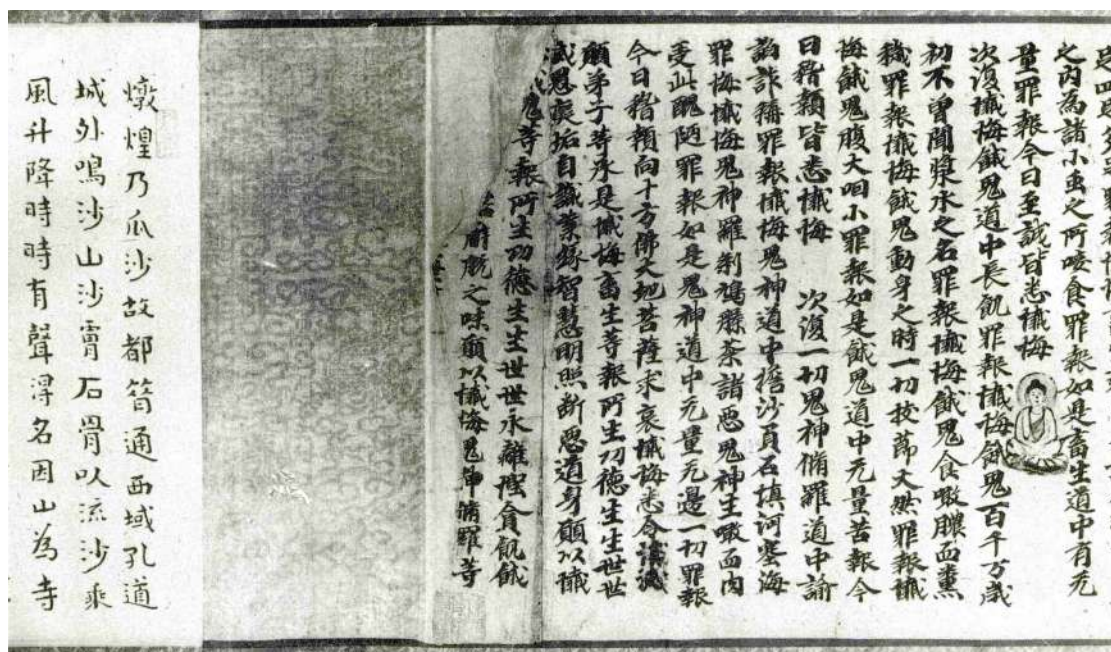 之内為諸小虫之所唼食罪報如是畜生道中有无
量罪報今日至誠皆悉懺悔
次復懺悔餓鬼道中長飢罪報懺悔餓鬼百千万歲
初不曾聞漿水之名罪報懺悔餓鬼食噉膿血糞
穢罪報懺悔餓鬼動身之時一切枝莭火然罪報懺
悔餓鬼腹大咽小罪報如是餓鬼道中无量苦報今
日稽顙皆悉懺悔 次復一切鬼神脩羅道中諭
諂詐稱罪報懺悔鬼神道中擔沙負石填河塞海
罪悔懺悔鬼神羅剎鳩槃荼諸惡鬼神生噉血肉
受此醜陋罪報如是鬼神道中无量无邊一切罪報
今日稽顙向十方佛大地菩薩求哀懺悔悉令滅
願弟子等承是懺悔畜生等報所生功德生生世世
滅愚癡垢自識業緣智慧明照斷惡道身願以懺
鬼等報所生功德生生世世永離慳貪飢餓
脫之味願以懺悔鬼神脩羅等
燉煌乃瓜沙故都筦通西域孔道
城外鳴沙山沙膚石骨以流沙乘
風升降時時有聲淂名因山為寺